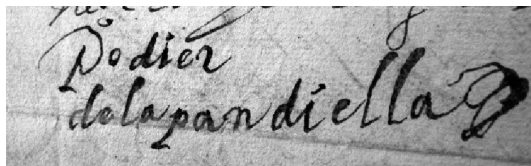 Dodier
delapandiella